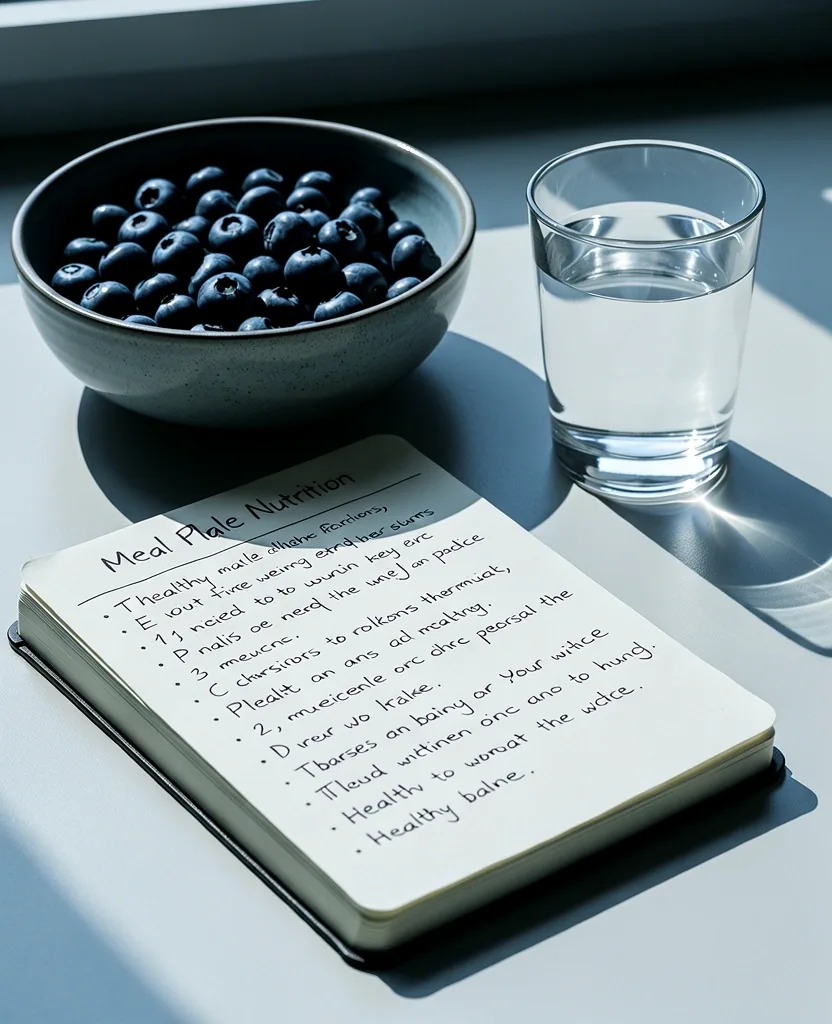 Meal Plale Nutrition
• Thealthy maile alhahe fantions,
• E iout fire weiring etrd ber sums
• 1j ncied to to wunin key erc
• P nalis oe nerd the unej an packe
• 3 meucnc.
• C chirsirors to rolkons thermuiat,
• Plealit an ans ad mcalting.
• 2, mueicenle orc dhrc peorsal the
• D irer wo krake.
• Tbarses an bainy ar Your witice
• Tleud wictinen onc ano to hung.
• Healthv to woruat the wdce.
• Healthy balne.